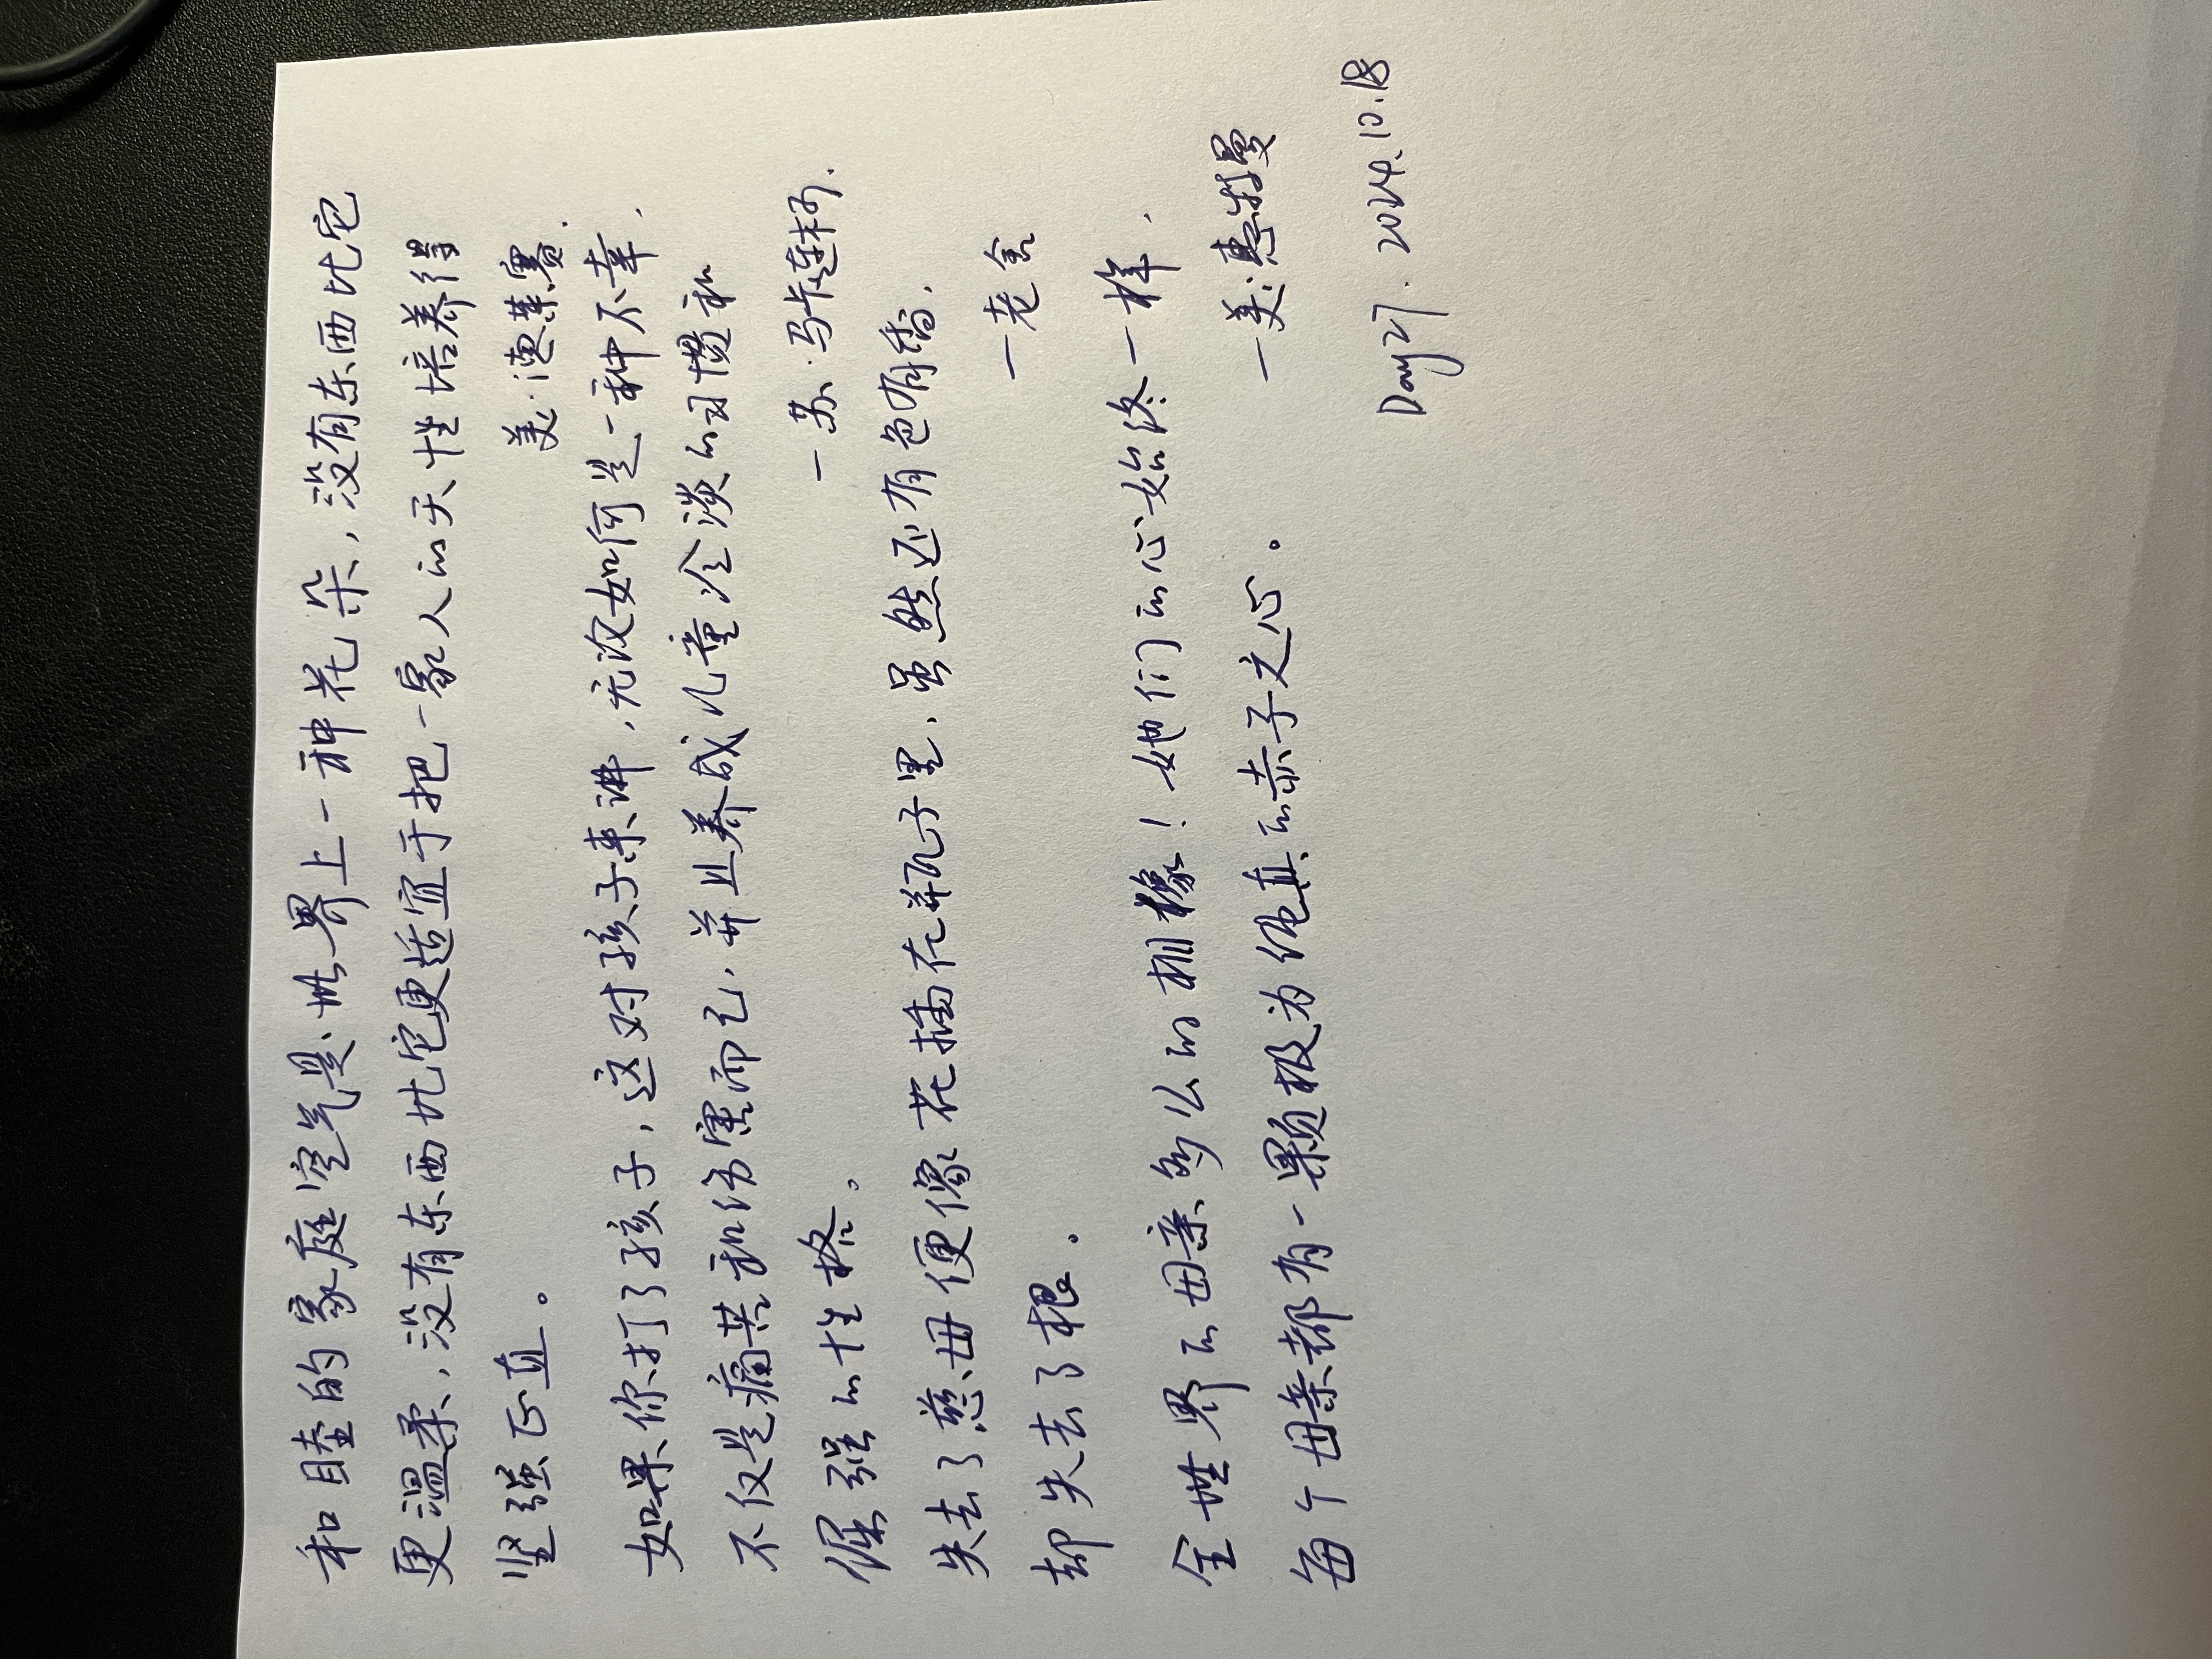 和睦的家庭空气是世界上一种花朵，没有东西比它
更温柔，没有东西比它更适宜于把一家人的天性培养得
坚强正直。
美·德莱赛.
如果你打了孩子，这对孩子来讲，无论如何是一种不幸，
不仅是痛苦和伤害而已，并且养成儿童冷淡的习惯和
倔强的性格。
—苏·马卡连柯.
失去了慈母便像花插在瓶子里，虽然还有色有香，
却失去了根。
—老舍
全世界的母亲多么的相像！她们的心始终一样，
每个母亲都有一颗极为纯真的赤子之心。
—美·惠特曼
Day27. 2024.10.18